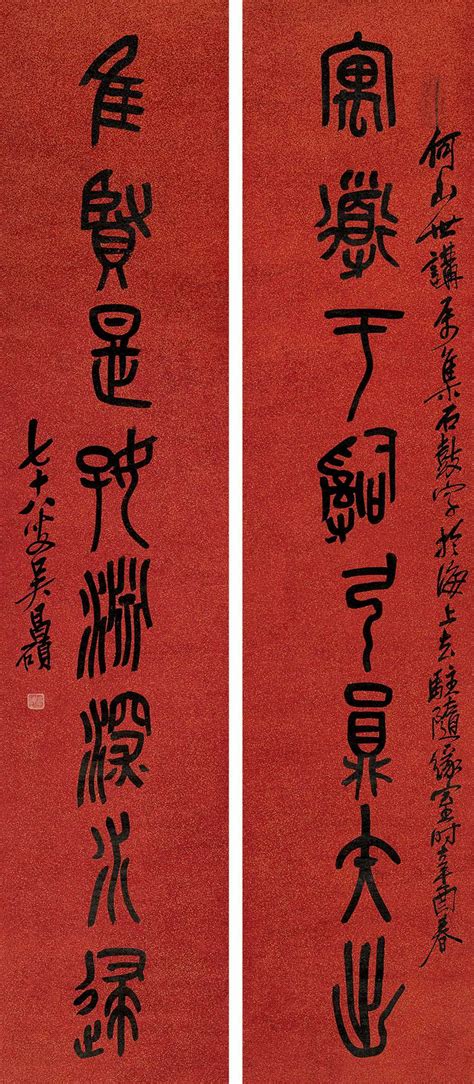 寓道于辭乃大出
何山世講屬集石鼓字於海上去駐隨緣室時辛酉春
隹賢是好淵深水歸
七十八叟吳昌碩